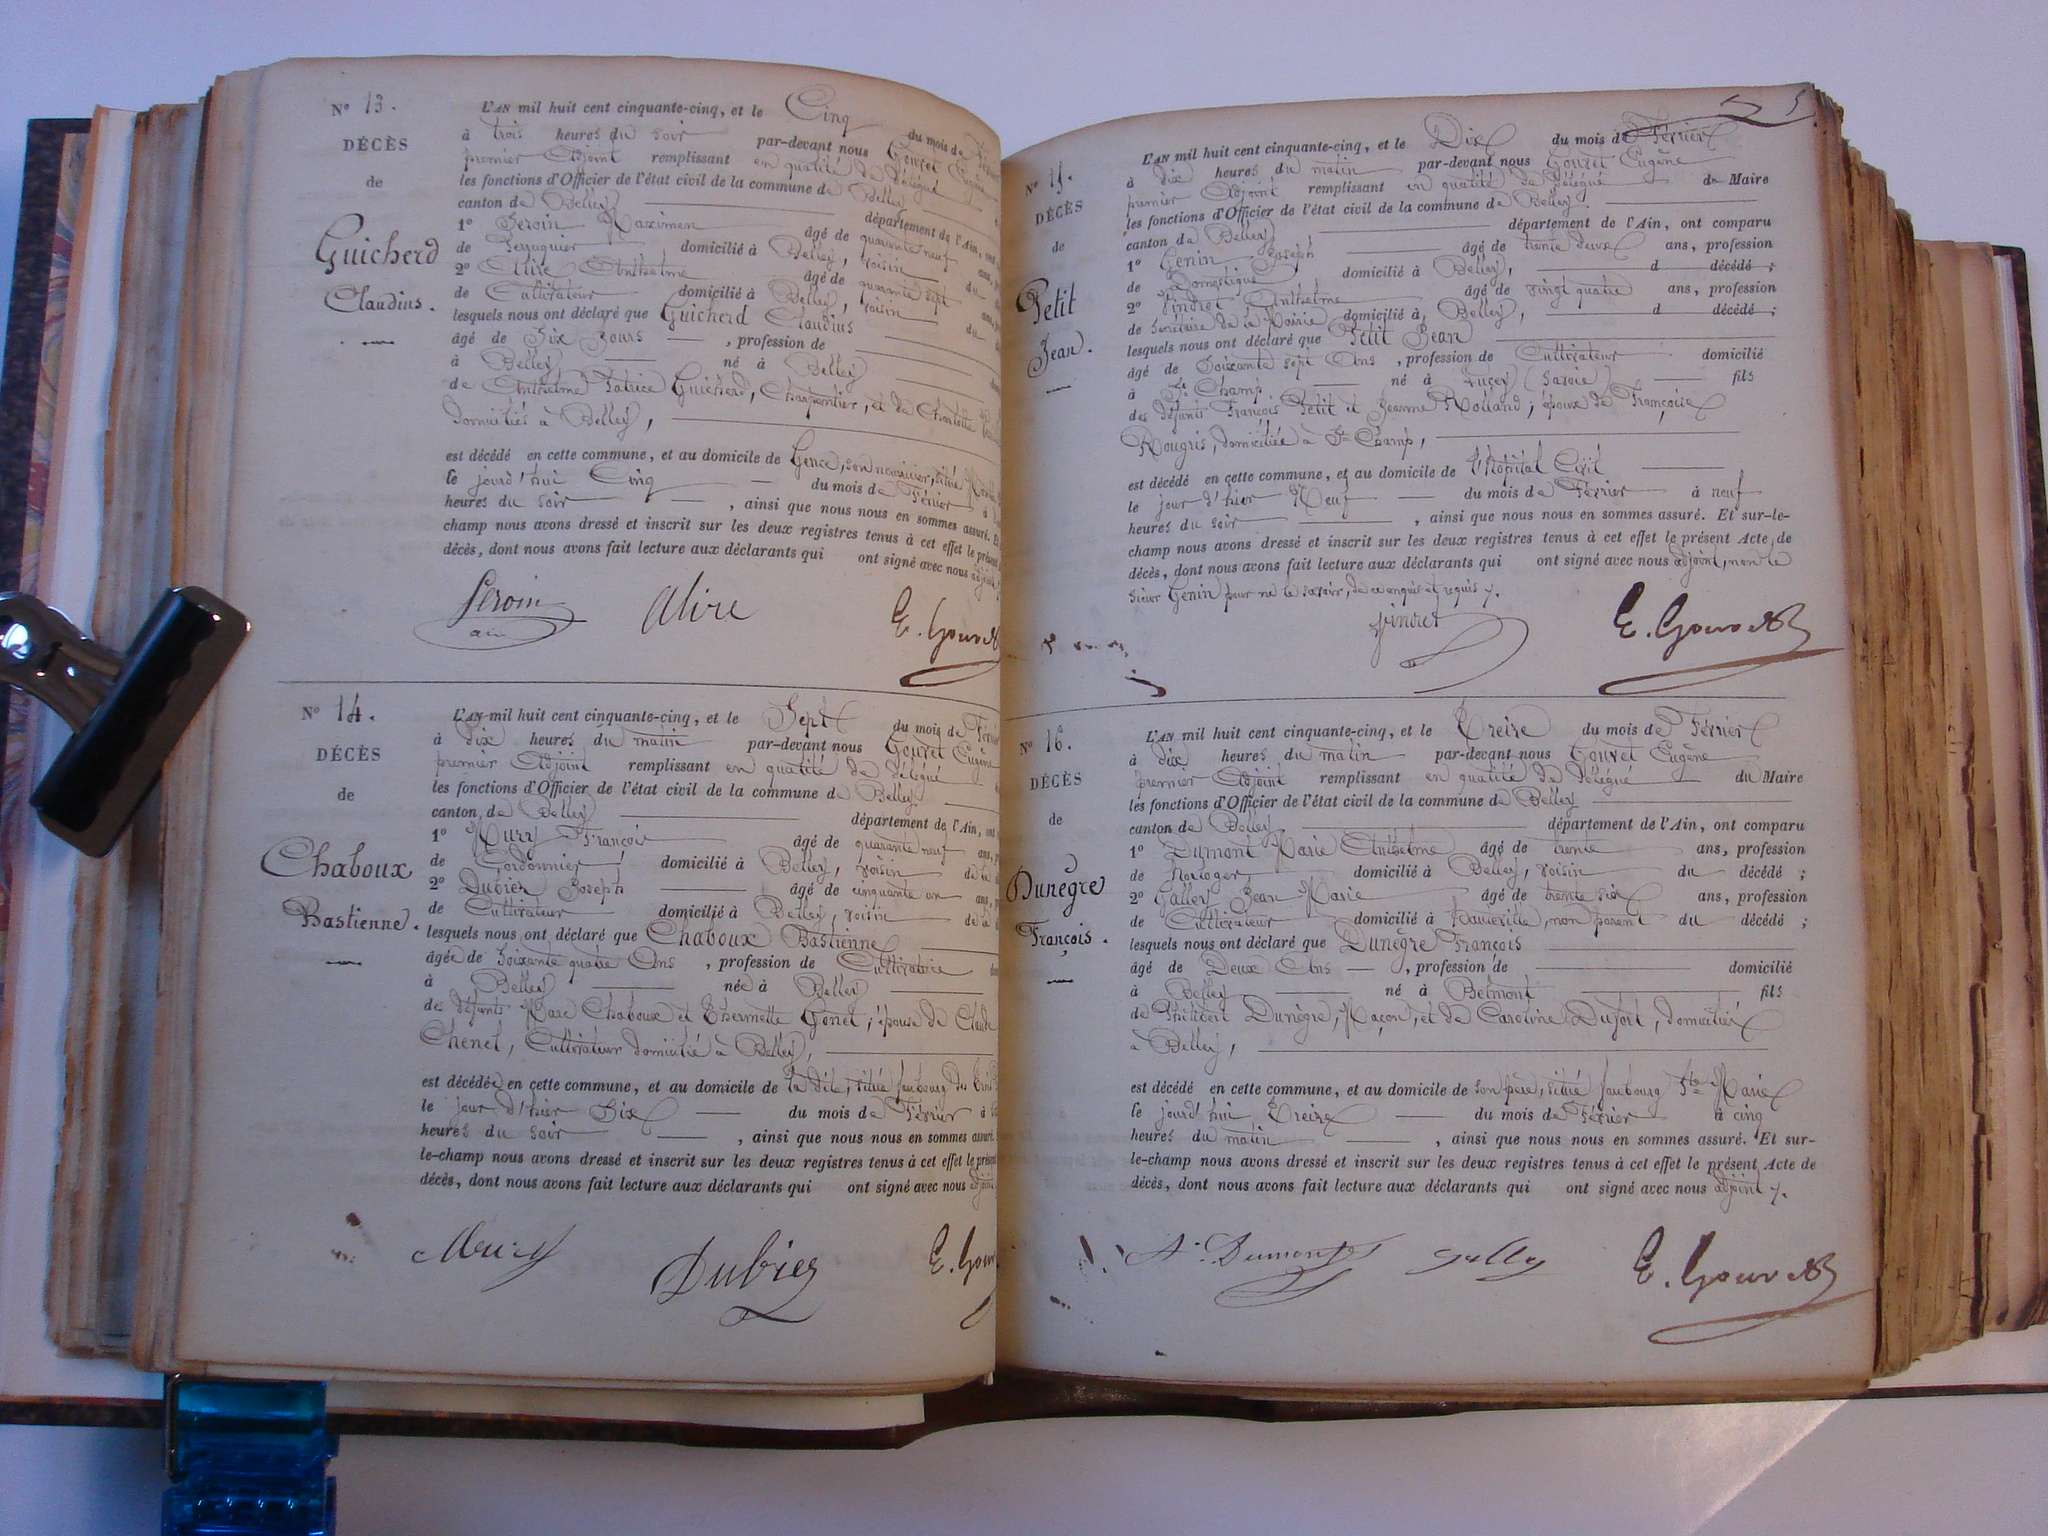 N° 13.
DÉCÈS
de
Guicherd
Claudius.
L'AN mil huit cent cinquante-cinq, et le Cinq du mois de
à trois heures du soir par-devant nous Gouvet Eugène
premier Adjoint remplissant en qualité de délégué
les fonctions d'Officier de l'état civil de la commune de Belley
canton de Belley département de l'Ain, ont
1° Maximin âgé de quarante neuf ans,
de domicilié à Belley, voisin du
2° Alire Anthelme âgé de quarante sept ans,
de Cultivateur domicilié à Belley, voisin du
lesquels nous ont déclaré que Guicherd Claudius
âgé de Six Jours, profession de
à Belley né à Belley
de Anthelme Patrice Guicherd, Charpentier, et de Charlotte
domiciliés à Belley,
est décédé en cette commune, et au domicile de Gence, son nourricier, situé
le jourd'hui Cinq du mois de Février à
heures du soir, ainsi que nous nous en sommes assuré. Et
champ nous avons dressé et inscrit sur les deux registres tenus à cet effet le présent
décès, dont nous avons fait lecture aux déclarants qui ont signé avec nous adjoint
Alire E. Gouvet
N° 14.
DÉCÈS
de
Chaboux
Bastienne.
L'AN mil huit cent cinquante-cinq, et le Sept du mois de Février
à dix heures du matin par-devant nous Gouvet Eugène
premier Adjoint remplissant en qualité de délégué
les fonctions d'Officier de l'état civil de la commune de Belley
canton de Belley département de l'Ain, ont
1° Mury François âgé de quarante neuf ans,
de Cordonnier domicilié à Belley, voisin de la
2° Dubiez Joseph âgé de cinquante un ans,
de Cultivateur domicilié à Belley, voisin de la
lesquels nous ont déclaré que Chaboux Bastienne
âgée de Soixante quatre Ans, profession de Cultivatrice
à Belley née à Belley
des défunts Marc Chaboux et Thermette Gonet; épouse de Claude
Chenet, Cultivateur domicilié à Belley,
est décédée en cette commune, et au domicile de la dite, situé faubourg des
le jour d'hier Six du mois de Février à
heures du soir, ainsi que nous nous en sommes assuré.
le-champ nous avons dressé et inscrit sur les deux registres tenus à cet effet le présent
décès, dont nous avons fait lecture aux déclarants qui ont signé avec nous adjoint
Mury Dubiez E. Gouvet
5
N° 15.
DÉCÈS
de
Petit
Jean.
L'AN mil huit cent cinquante-cinq, et le Dix du mois de Février
à dix heures du matin par-devant nous Gouvet Eugène
premier Adjoint remplissant en qualité de délégué de Maire
les fonctions d'Officier de l'état civil de la commune de Belley
canton de Belley département de l'Ain, ont comparu
1° Genin Joseph âgé de trente deux ans, profession
de Domestique domicilié à Belley, d décédé;
2° Vindret Anthelme âgé de vingt quatre ans, profession
de Secrétaire de la Mairie domicilié à Belley, d décédé;
lesquels nous ont déclaré que Petit Jean
âgé de Soixante sept Ans, profession de Cultivateur domicilié
à St Champ né à Lucey (Savoie) fils
des défunts François Petit et Jeanne Rolland; époux de Françoise
Rougris, domiciliée à St Champ,
est décédé en cette commune, et au domicile de l'Hôpital Civil
le jour d'hier Neuf du mois de Février à neuf
heures du soir, ainsi que nous nous en sommes assuré. Et sur-le-
champ nous avons dressé et inscrit sur les deux registres tenus à cet effet le présent Acte de
décès, dont nous avons fait lecture aux déclarants qui ont signé avec nous adjoint, non le
Sieur Genin pour ne le savoir, de ce enquis et requis
Vindret E. Gouvet
N° 16.
DÉCÈS
de
Dunègre
François.
L'AN mil huit cent cinquante-cinq, et le Treize du mois de Février
à dix heures du matin par-devant nous Gouvet Eugène
premier Adjoint remplissant en qualité de délégué du Maire
les fonctions d'Officier de l'état civil de la commune de Belley
canton de Belley département de l'Ain, ont comparu
1° Dumont Marie Anthelme âgé de trente ans, profession
de Horloger domicilié à Belley, voisin du décédé;
2° Galley Jean Marie âgé de trente six ans, profession
de Cultivateur domicilié à Hauteville, non parent du décédé;
lesquels nous ont déclaré que Dunègre François
âgé de Deux Ans, profession de domicilié
à Belley né à Belmont fils
de Philibert Dunègre, Maçon, et de Caroline Dufort, domiciliés
à Belley,
est décédé en cette commune, et au domicile de son père, situé faubourg Ste Marie
le jourd'hui Treize du mois de Février à cinq
heures du matin, ainsi que nous nous en sommes assuré. Et sur-
le-champ nous avons dressé et inscrit sur les deux registres tenus à cet effet le présent Acte de
décès, dont nous avons fait lecture aux déclarants qui ont signé avec nous adjoint
A. Dumont Galley E. Gouvet